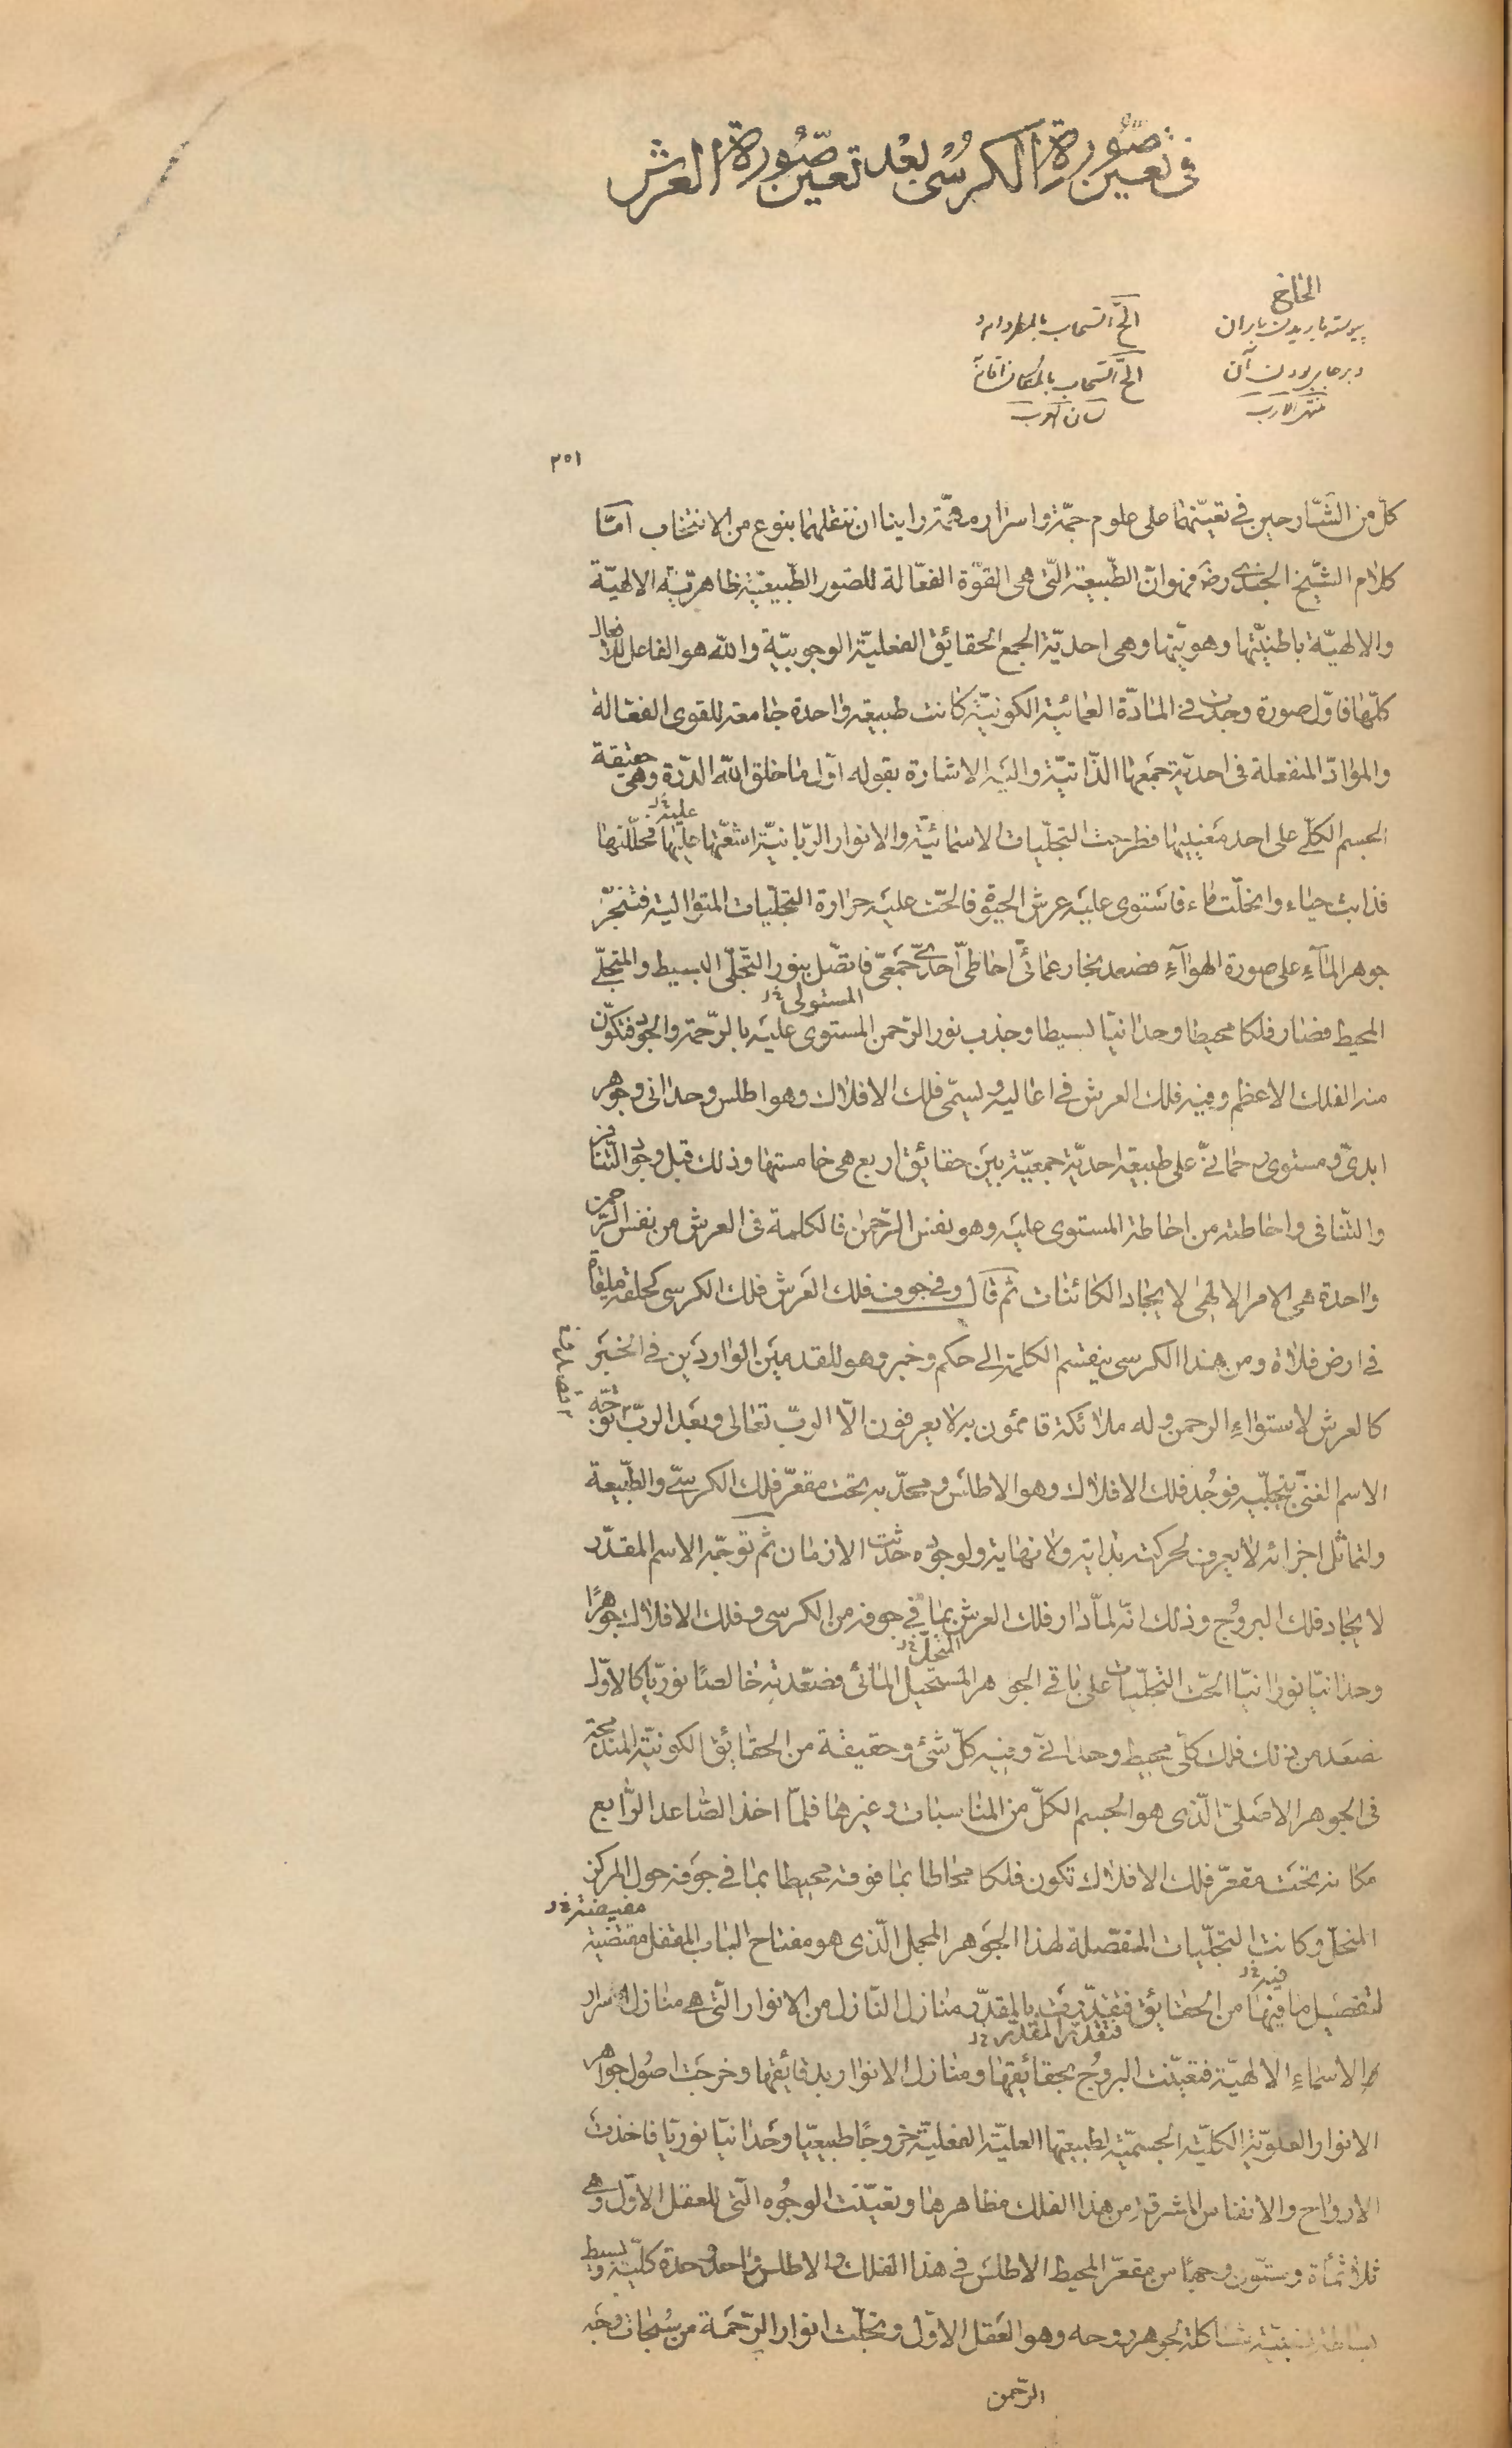 فى تعيين صورة الكرسى بعد تعيين صورة العرش
الخاج
پیوسته باریدن باران
و برجاى بودن آن
منتهى الارب
الحّ السحاب بالمطر دام
الحّ السحاب بالمكان اقام
لسان العرب
٢٥١
كلّ من الشّارحين فى تعيّنها على علوم جمّة واسرار مهمّة راينا ان ننقلهما بنوع من الانتخاب امّا
كلام الشّيخ الجندى رضـ فهو انّ الطّبيعة الّتى هى القوّة الفعّالة للصّور الطّبيعيّة ظاهريّة الالهيّة
والالهيّة باطنيّتها وهويّتها وهى احديّة الجمع الحقائق الفعليّة الوجوبيّة والله هو الفاعل للافعال
كلّها فاوّل صورة وجدت فى المادّة العمائيّة الكونيّة كانت طبيعة واحدة جامعة للقوى الفعّالة
والموادّ المنفعلة فى احديّة جمعها الذّاتيّة واليه الاشارة بقوله اوّل ما خلق الله الدّرّة وهى حقيقة
الجسم الكلّى على احد معنييها فطرحت التجلّيات الاسمائيّة والانوار الرّبّانيّة اشعّتها عليها فحلّلتها
عليه خ‌ل
فذابت حياء وانحلّت ماء فاستوى عليه عرش الحيوة فالحّت عليه حرارة التجلّيات المتوالية فتبخّر
جوهر الماء على صورة الهواء فصعد بخار عمائىّ احاطىّ احدىّ جمعىّ فاتّصل بنور التّجلّى البسيط والمتجلّى
المحيط فصار فلكا محيطا وحدانيّا بسيطا وجذب نور الرّحمن المستوى عليه بالرّحمة والجود فتكوّن
المستولى خ‌ل
منه الفلك الاعظم وفيه فلك العرش فى اعاليه ويسمّى فلك الافلاك وهو اطلس وحدانى وجوهر
ابدىّ ومستوى رحمانىّ على طبيعة احديّة جمعيّة بين حقائق اربع هى خامستها وذلك قبل وجود التّنافر
والتّنافى واحاطته من احاطة المستوى عليه وهو نفس الرّحمن فالكلمة فى العرش من نفس الرّحمن
واحدة هى الامر الالهى لايجاد الكائنات ثم قال وفى جوف فلك العرش فلك الكرسى كحلقة ملقاة
فى ارض فلاة ومن هذا الكرسى ينقسم الكلمة الى حكم وخبر وهو للقدمين الواردين فى الخبر
كالعرش لاستواء الرحمن وله ملائكة قائمون به لا يعرفون الّا الربّ تعالى وبعد الربّ توجّه
الاسم الغنىّ بتجلّيه فوُجد فلك الافلاك وهو الاطلس ومحدّبه تحت مقعّر فلك الكرسىّ والطّبيعة
ولتماثل اجزائه لا يعرف لحركته بداية ولا نهاية ولوجوده حدثت الازمان ثم توجّه الاسم المقدّر
لايجاد فلك البروج وذلك انّه لمّا دار فلك العرش بما فى جوفه من الكرسى وفلك الافلاك جوهرًا
وحدانيّا نورانيّا الحّت التجلّيات على باقى الجوهر المستحيل المائى فصعّدته خالصًا نوريّا كالاوّل
المنحلّ خ‌ل
فصعد من ذلك فلك كلّى محيط وحدانىّ وفيه كلّ شىء وحقيقة من الحقائق الكونيّة المندمجة
فى الجوهر الاصلىّ الّذى هو الجسم الكلّ من المناسبات وغيرها فلمّا اخذ الصّاعد الرّابع
مكانه تحت مقعّر فلك الافلاك تكون فلكا محاطا بما فوقه محيطا بما فى جوفه حول المركز
المنحلّ وكانت التجلّيات المفصّلة لهذا الجوهر المجمل الّذى هو مفتاح الباب المقفل مقتضية
مفيضة خ‌ل
لتفصيل ما فيها من الحقائق فتقدّرت بالمقدّر منازل النّازل من الانوار الّتى هى منازل اسرار
فيه خ‌ل
فتقدّر المقدّر خ‌ل
الاسماء الالهيّة فتعيّنت البروج بحقائقها ومنازل الانوار بدقائقها وخرجت اصول جواهر
الانوار العلويّة الكليّة الجسميّة لطبيعتها العليّة الفعليّة خروجًا طبيعيّا وحدانيّا نوريّا فاخذت
الارواح والانفاس المشرقة من هذا الفلك مظاهرها وتعيّنت الوجوه الّتى للعقل الاوّل وهى
ثلاثمأة وستّون وجها من مقعّر المحيط الاطلس فى هذا الفلك والاطلس واحد وحدة كليّة وبسيط
بساطة نسبيّة شاكلة لجوهر روحه وهو العقل الاوّل وتجلّت انوار الرّحمة من سُبحات وجه
الرّحمن